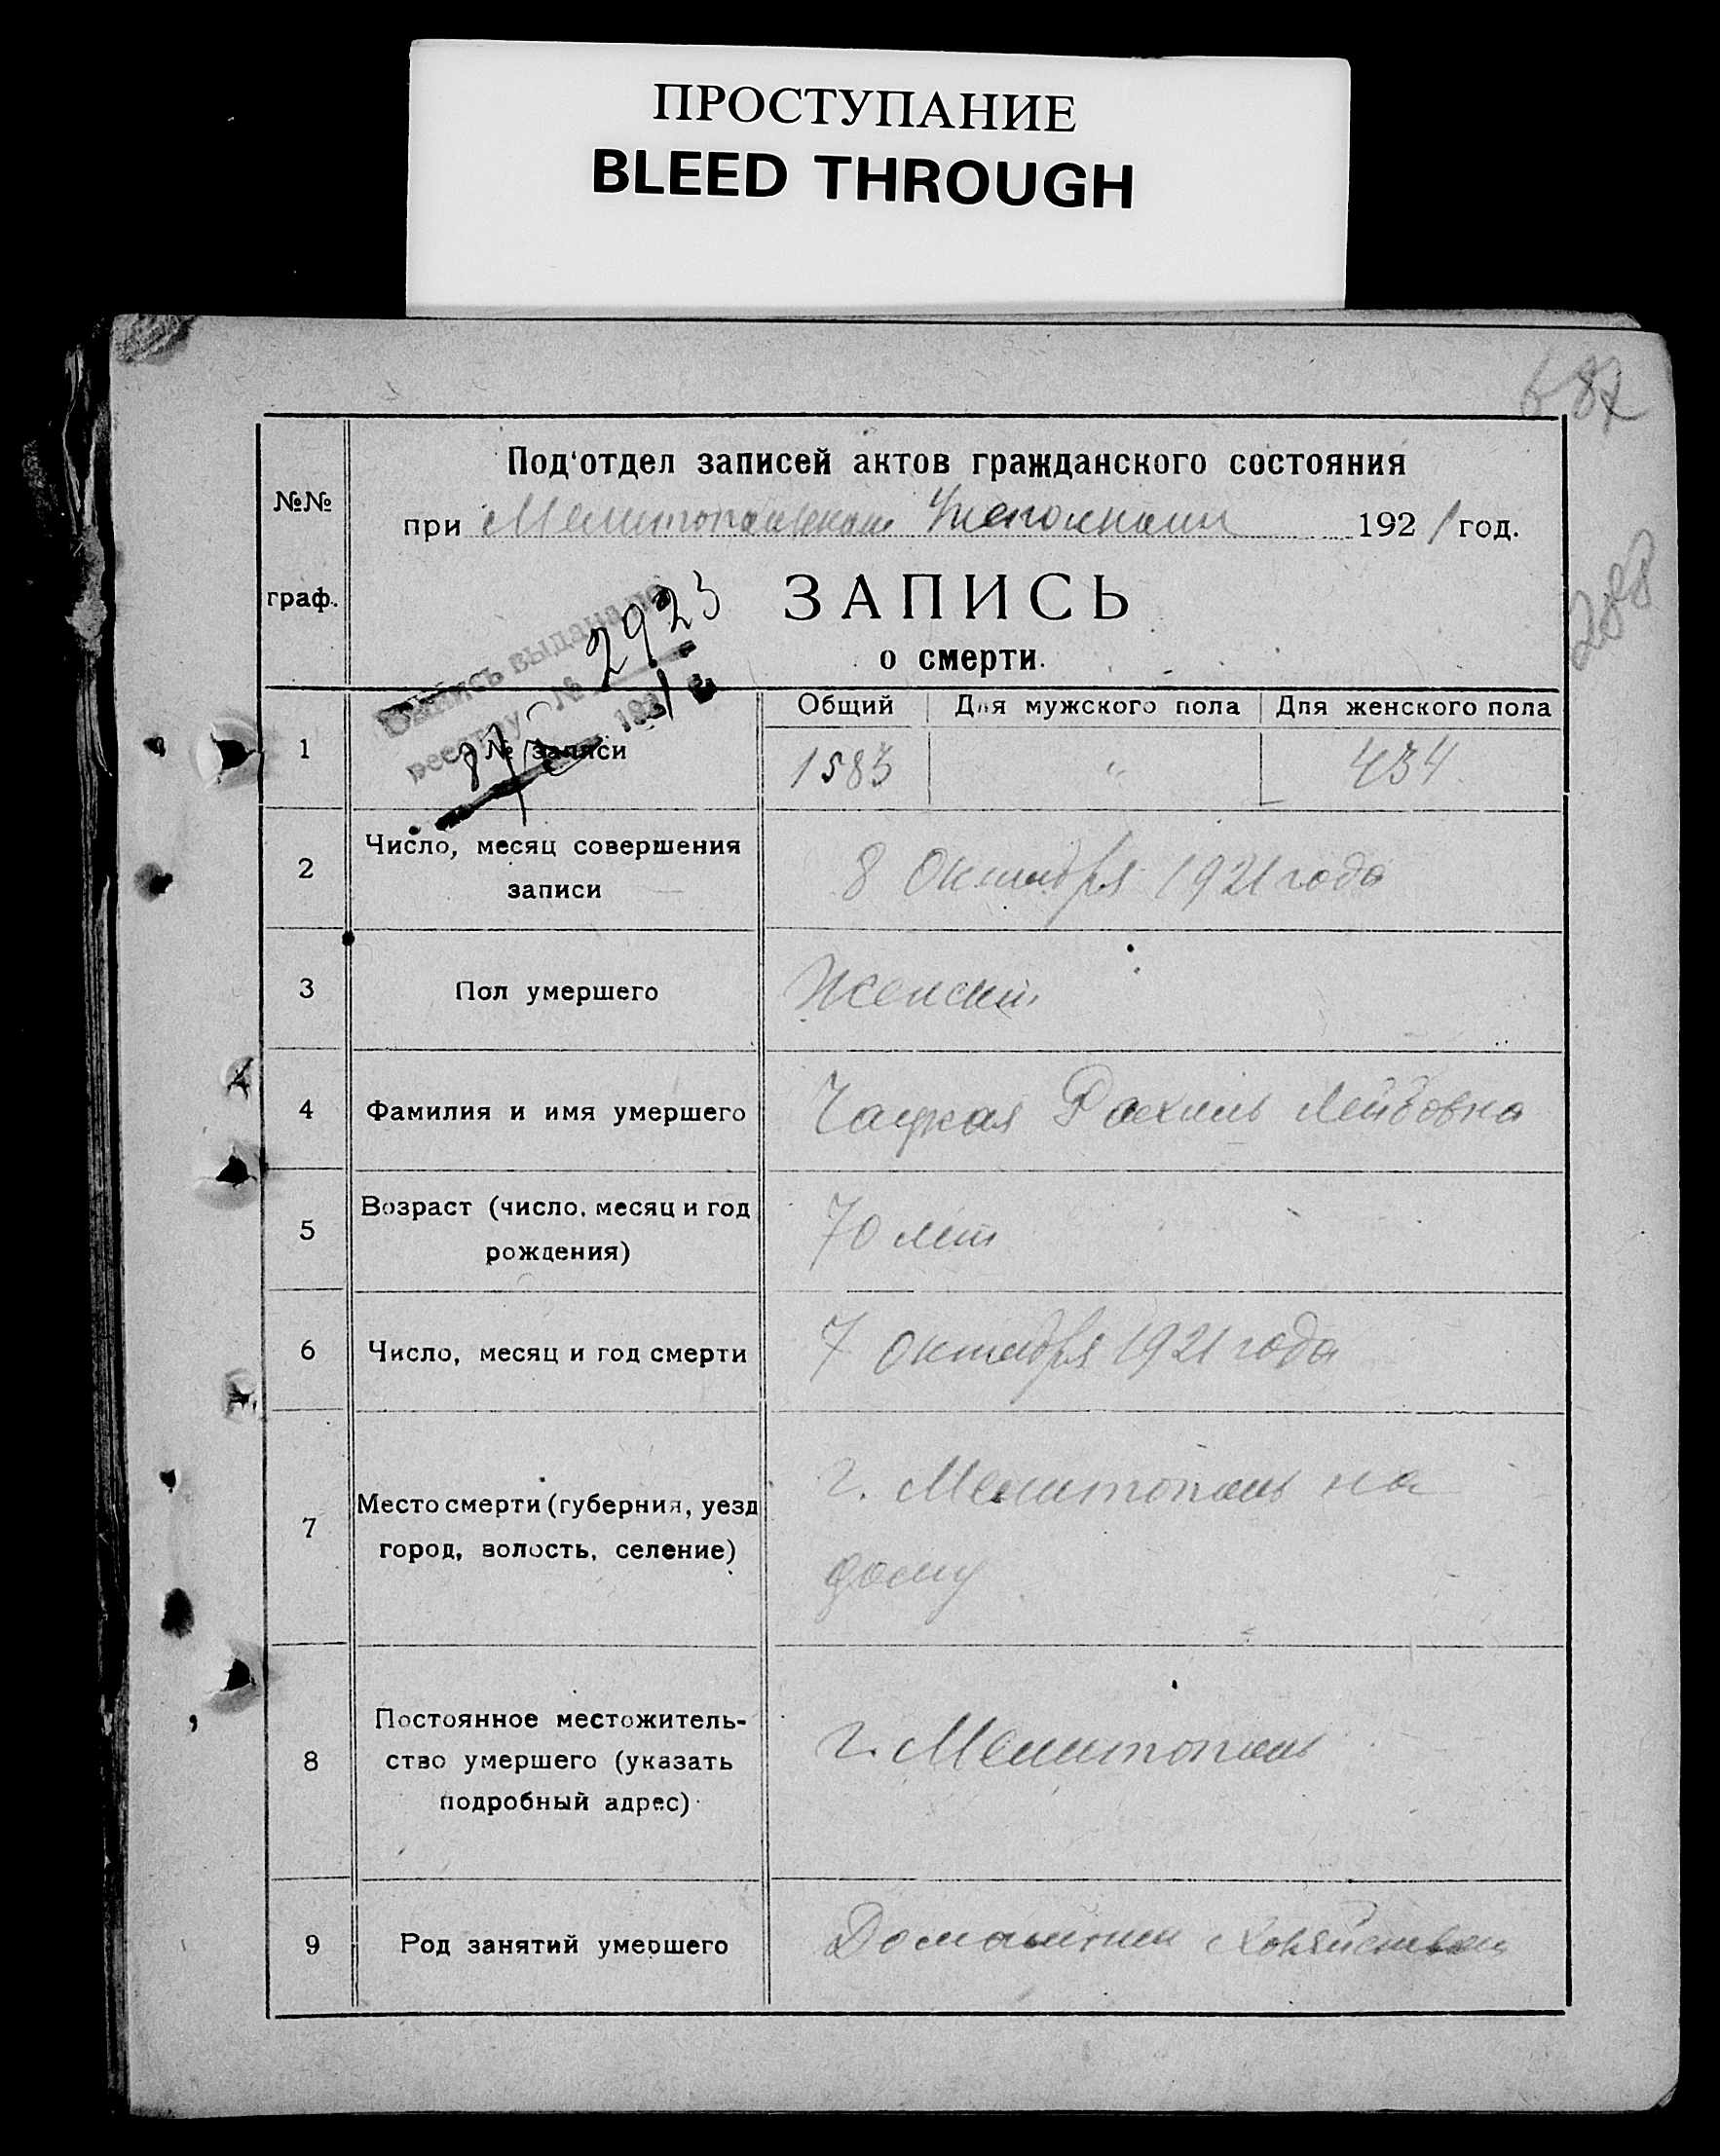 ПРОСТУПАНИЕ
BLEED THROUGH
687
Под'отдел записей актов гражданского состояния
№№
при Мелитопольском Уисполкоме 1921 год.
288
граф.
ЗАПИСЬ
о смерти.
выдана по
реестру № 2923
8/X 1921 г.
Общий Для мужского пола Для женского пола
1 № записи 1583 " 434
2 Число, месяц совершения
записи
8 Октября 1921 года
3 Пол умершего Женский
4 Фамилия и имя умершего Чацкая Рахиль Лейбовна
5 Возраст (число, месяц и год
рождения)
70 лет
6 Число, месяц и год смерти 7 Октября 1921 года
7 Место смерти (губерния, уезд
город, волость, селение)
г. Мелитополь на
дому
8 Постоянное местожитель-
ство умершего (указать
подробный адрес)
г. Мелитополь
9 Род занятий умершего Домашним хозяйством